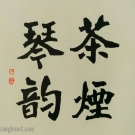 茶煙
琴韵